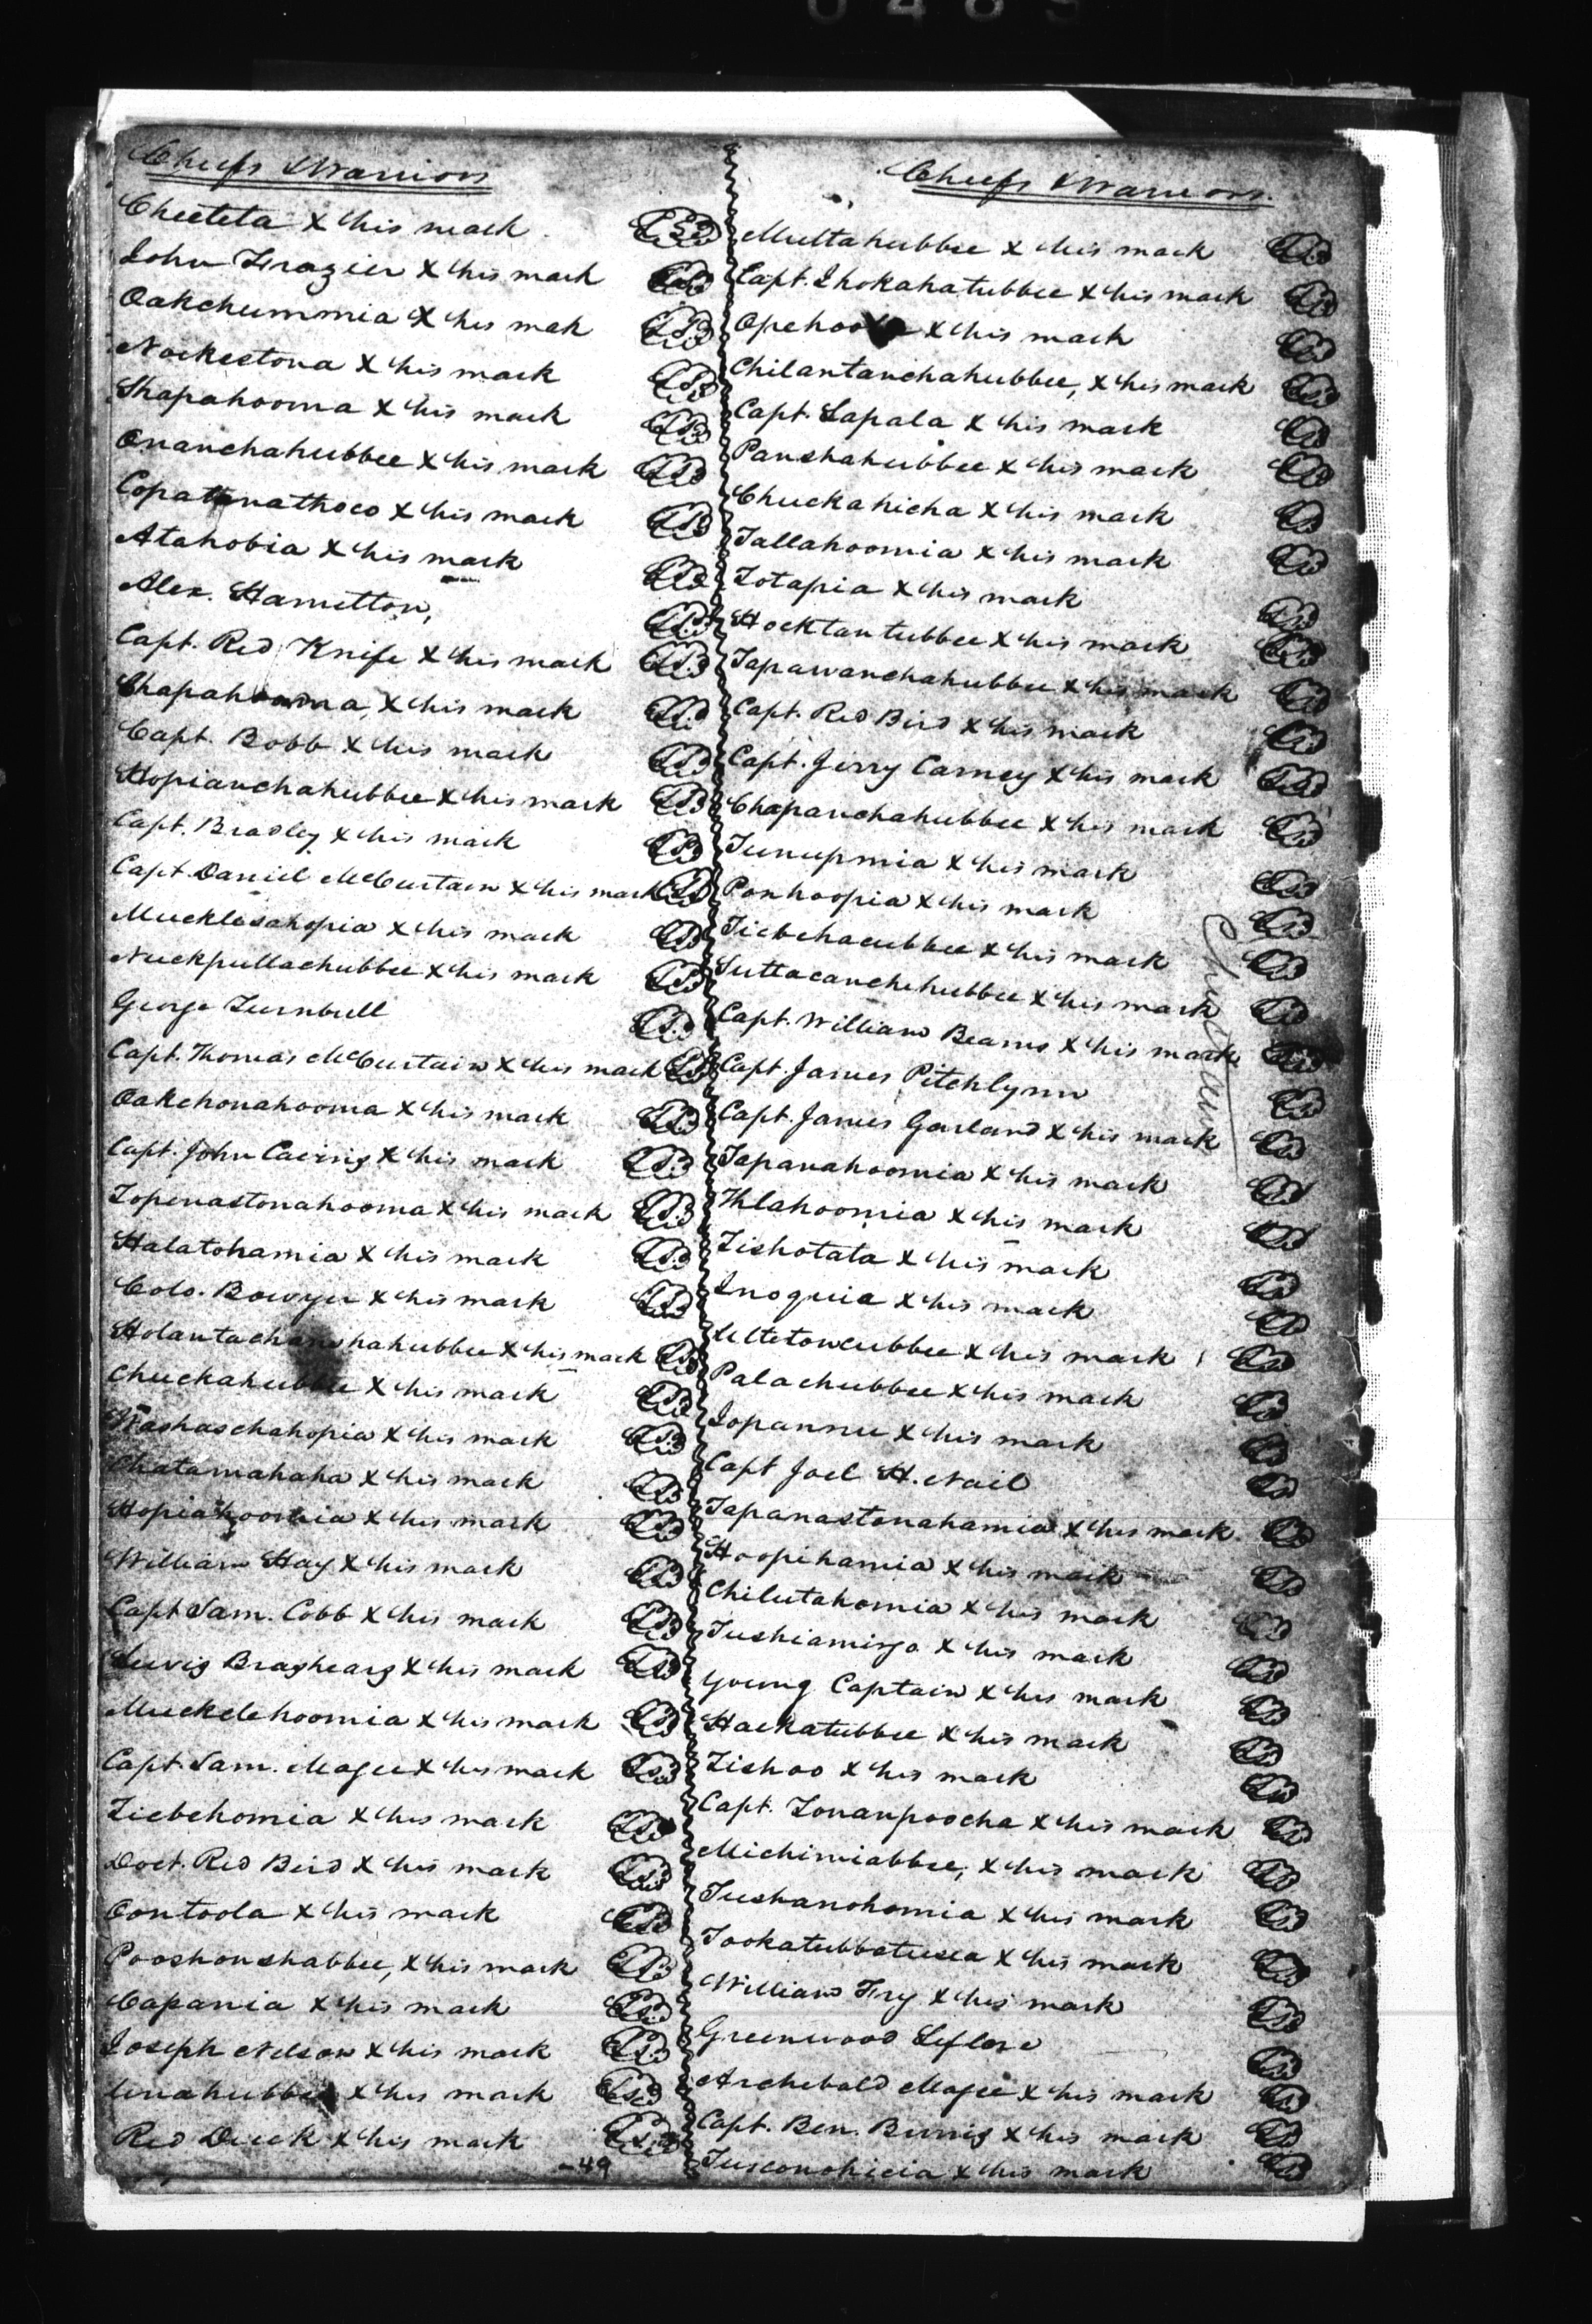 Chiefs & Warriors
Cheeteta X his mark L.S.
John Frazier X his mark L.S.
Oakchummia X his mak L.S.
Nockestona X his mark L.S.
Shapahooma X his mark L.S.
Onanchahubbee X his mark L.S.
Copatanathoco X his mark L.S.
Atahobia X his mark L.S.
Alex. Hamilton, L.S.
Capt. Red Knife X his mark L.S.
Shapahooma, X his mark L.S.
Capt. Bobb X his mark L.S.
Hopianchahubbee X his mark L.S.
Capt. Bradley X his mark L.S.
Capt. Daniel McCurtain X his mark L.S.
Mucklesahopia X his mark L.S.
Nuckpullachubbee X his mark L.S.
George Turnbull L.S.
Capt. Thomas McCurtain X his mark L.S.
Oakchonahooma X his mark L.S.
Capt. John Cairns X his mark L.S.
Topenastonahooma X his mark L.S.
Halatohamia X his mark L.S.
Colo. Bowyer X his mark L.S.
Holantachanshahubbee X his mark L.S.
Chuckahubbee X his mark L.S.
Washaschahopia X his mark L.S.
Chatamahaha X his mark L.S.
Hopiahoomia X his mark L.S.
William Hay X his mark L.S.
Capt Sam. Cobb X his mark L.S.
Lewis Brashears X his mark L.S.
Muckelehoomia X his mark L.S.
Capt. Sam. Magee X his mark L.S.
Ticbehomia X his mark L.S.
Doct. Red Bird X his mark L.S.
Oontoola X his mark L.S.
Pooshonshabbee, X his mark L.S.
Capania X his mark L.S.
Joseph Nelson X his mark L.S.
Unahubbee X his mark L.S.
Red Duck X his mark L.S.
-49
Chiefs & Warriors.
Muttahubbee X his mark L.S.
Capt. Ihokahatubbee X his mark L.S.
X his mark L.S.
Chilantanchahubbee, X his mark L.S.
Capt. Lapala X his mark L.S.
Panshahubbee X his mark L.S.
Chuckahicha X his mark L.S.
Tallahoomia X his mark L.S.
Totapia X his mark L.S.
Hocktantubbee X his mark L.S.
Tapawanchahubbee X his mark L.S.
Capt. Red Bird X his mark L.S.
Capt. Jerry Carney X his mark L.S.
Chapanchahubbee X his mark L.S.
Tunupmia X his mark L.S.
Ponhoopia X his mark L.S.
Ticbehacubbee X his mark L.S.
Suttacanchihubbee X his mark L.S.
Capt. William Beams X his mark L.S.
Capt. James Pitchlynn L.S.
Capt. James Garland X his mark L.S.
Tapanahoomia X his mark L.S.
Thlahoomia X his mark L.S.
Tishotata X his mark L.S.
Inoquia X his mark L.S.
Ultetoncubbee X his mark L.S.
Palachubbee X his mark L.S.
Jopannu X his mark L.S.
Capt Joel H. Nail L.S.
Tapanastonahamia X his mark L.S.
Hoopihamia X his mark L.S.
Chilutahomia X his mark L.S.
Tushiamingo X his mark L.S.
Young Captain X his mark L.S.
Hackatubbee X his mark L.S.
Tishoo X his mark L.S.
Capt. Tonanpoocha X his mark L.S.
Michimiabbee, X his mark L.S.
Tushanohomia X his mark L.S.
Tookatubbatusea X his mark L.S.
William Fry X his mark L.S.
Greenwood Leflore L.S.
Archibald Magee X his mark L.S.
Capt. Ben. Burris X his mark L.S.
Tusconohicia X his mark L.S.